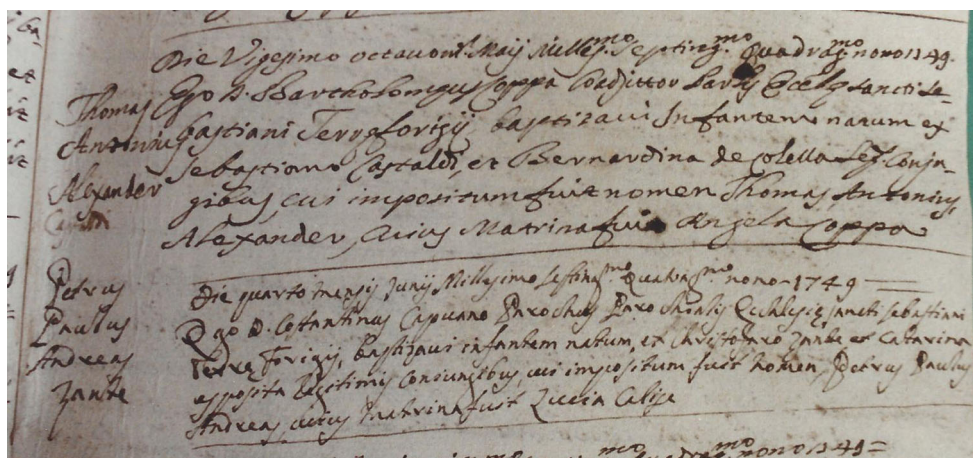 Die Vigesimo octavo m.s Maij Milles.mo Septing.mo Quadrag.mo nono 1749.
Thomas
Antonius
Alexander
Castaldi
Ego D. Bartholomęus Coppa Coadjittor Parlis Eccłę Sancti Se-
bastiani Terręforigij baptizavi Infantem natum ex
Sebastiano Castaldi, et Bernardina de Colella Leg. Conju-
gibus, cui impositum fuit nomen Thomas Antonius,
Alexander, cuius Matrina fuit Angela Coppa
Petrus
Paulus
Andreas
Zante
Die quarto mensis Junij Millesimo Septing.mo Quadrag.mo nono - 1749
Ego D. Costantinus Capuano Parochus Parochialis Ecclesię Sancti Sebastiani
Terrę Forigij, baptizavi infantem natum, ex Christofaro Zante et Catarina
esposita legitimis coniungibus, cui impositum fuit nomen, Petrus Paulus
Andreas, cuius matrina fuit Luccia Calise
mo mo nono 1749=